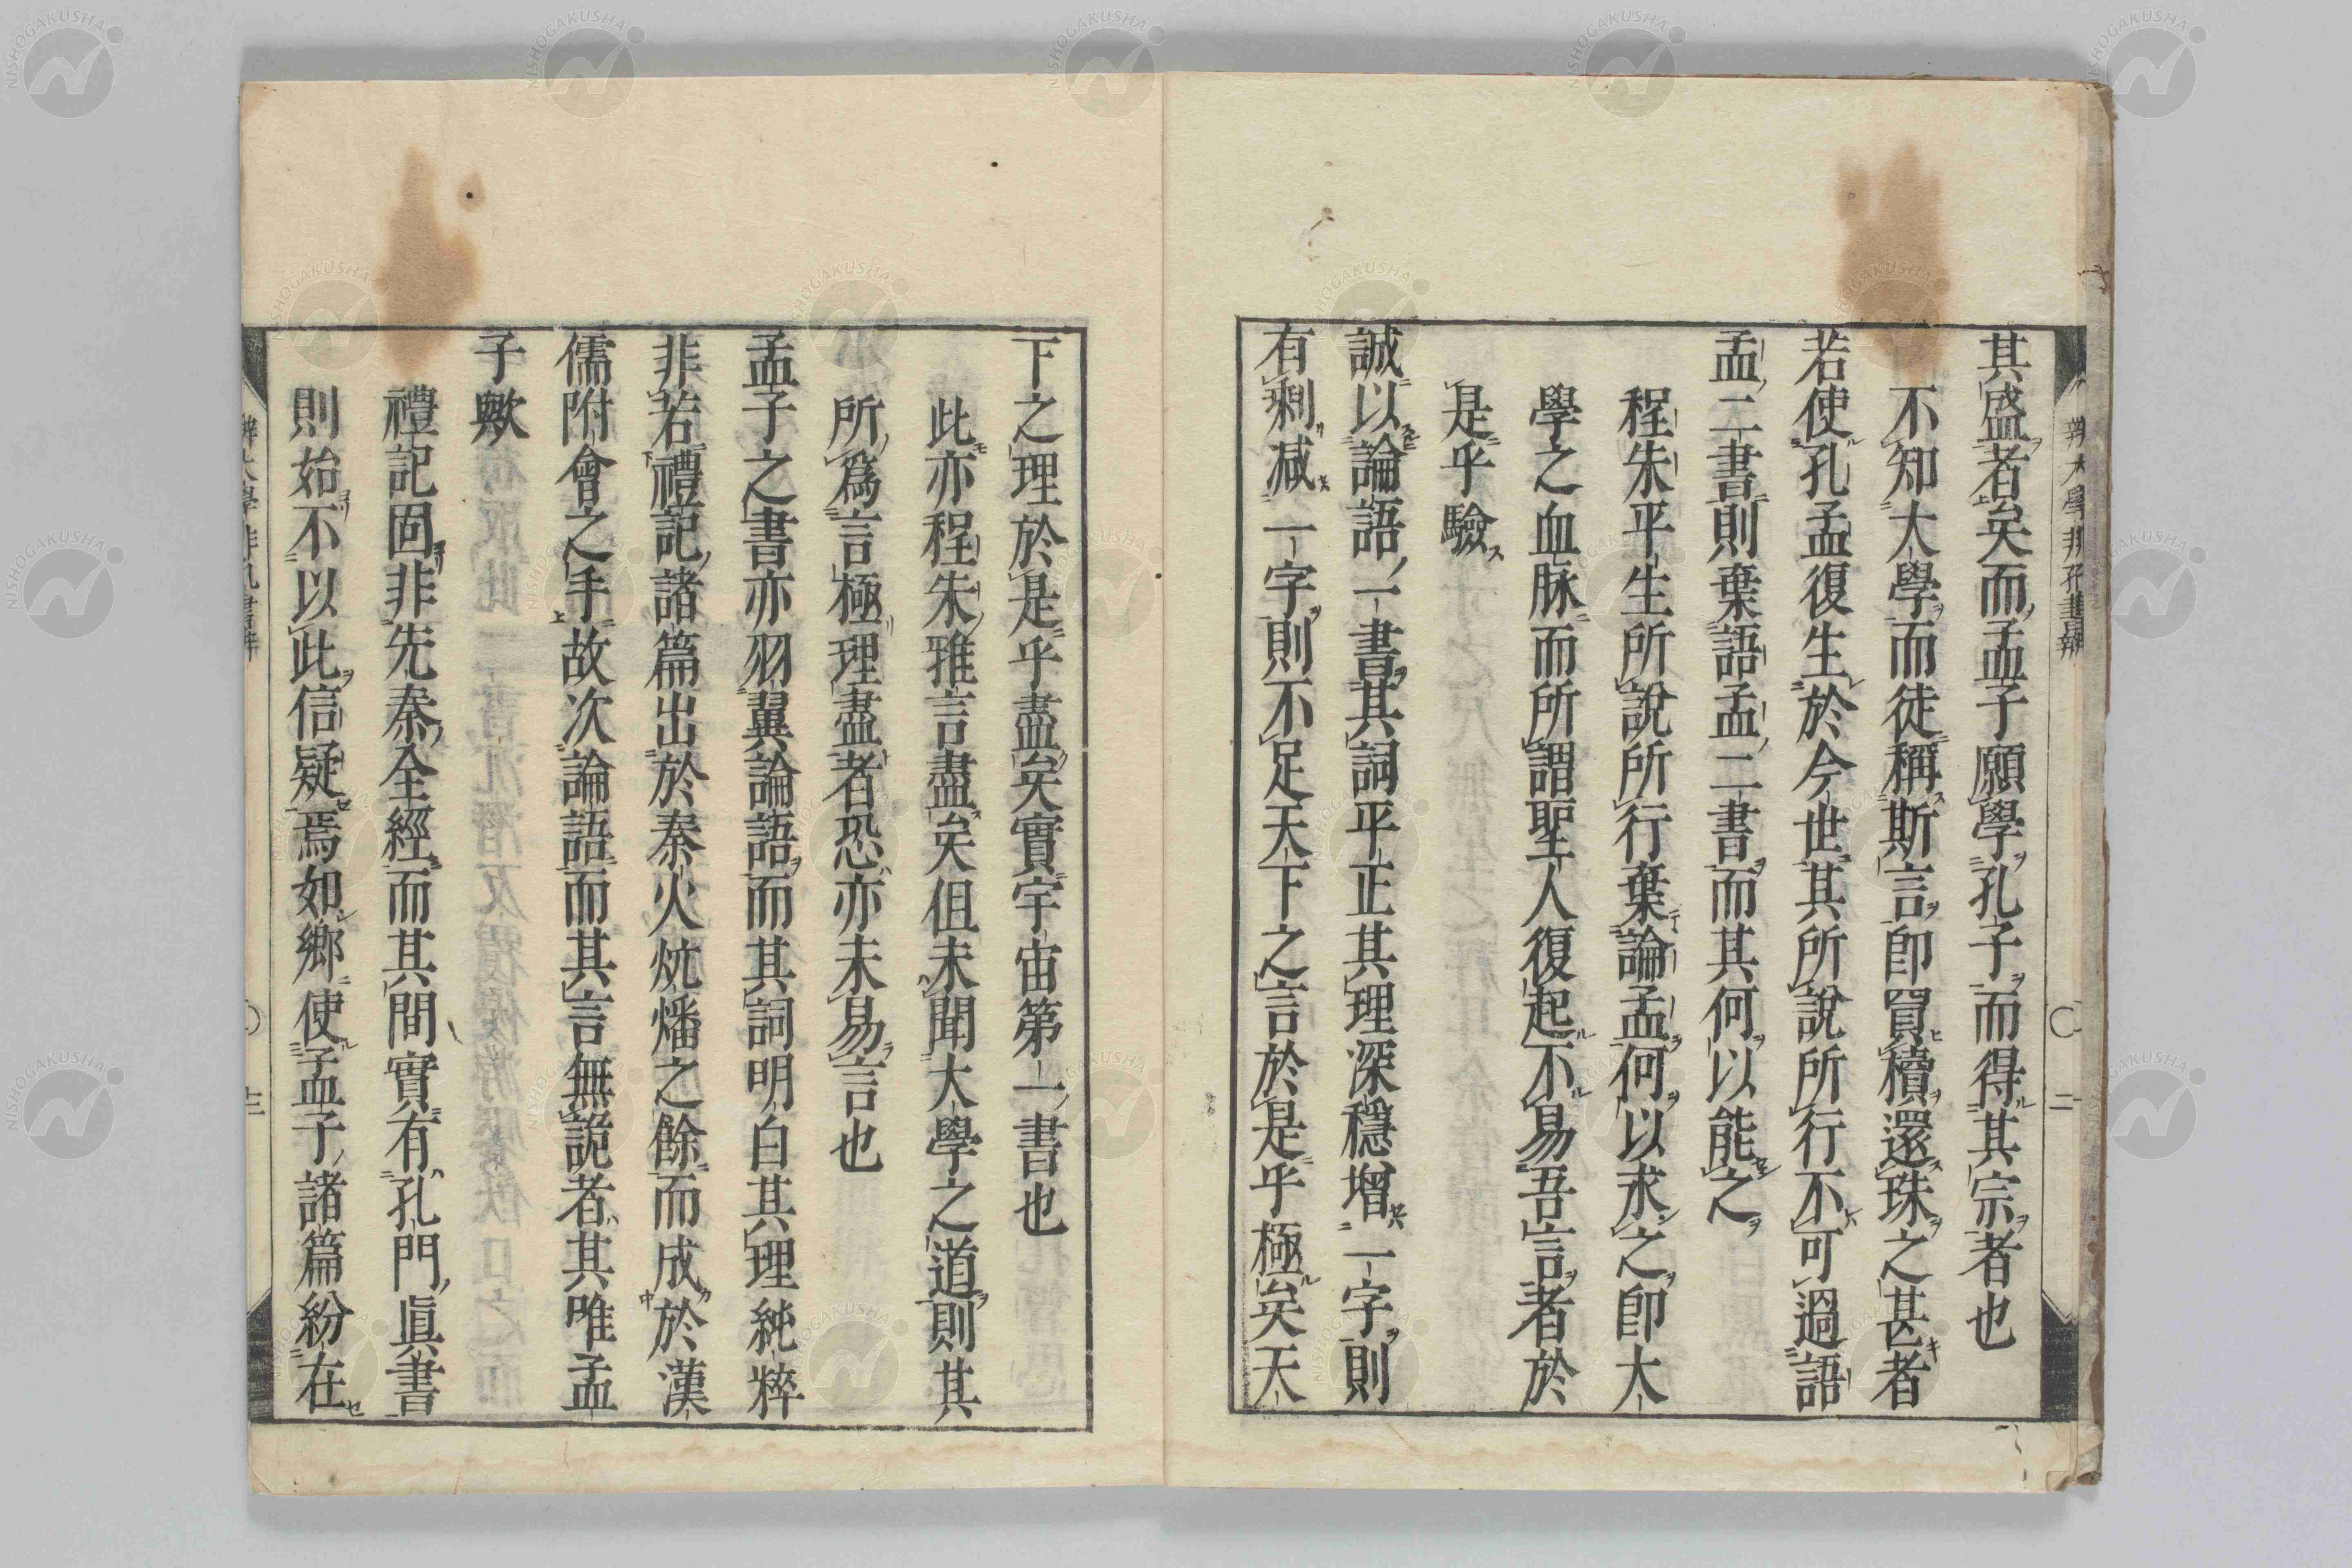 其盛者矣而孟子願學孔子而得其宗者也
不知大學而徒稱斯言卽買櫝還珠之甚者
若使孔孟復生於今世其所說所行不可過語
孟二書則棄語孟二書而其何以能之
程朱平生所說所行棄論孟何以求之卽大
學之血脉而所謂聖人復起不易吾言者於
是乎驗
誠以論語一書其詞平正其理深穩增一字則
有剩减一字則不足天下之言於是乎極矣天
下之理於是乎盡矣實宇宙第一書也
此亦程朱雅言盡矣但未聞大學之道則其
所爲言極理盡者恐亦未易言也
孟子之書亦羽翼論語而其詞明白其理純粹
非若禮記諸篇出於秦火炕燔之餘而成於漢
儒附會之手故次論語而其言無詭者其唯孟
子歟
禮記固非先秦全經而其間實有孔門眞書
則始不以此信疑焉如鄉使孟子諸篇紛在
辨大學非孔書辨
二
三
NISHOGAKUSHA